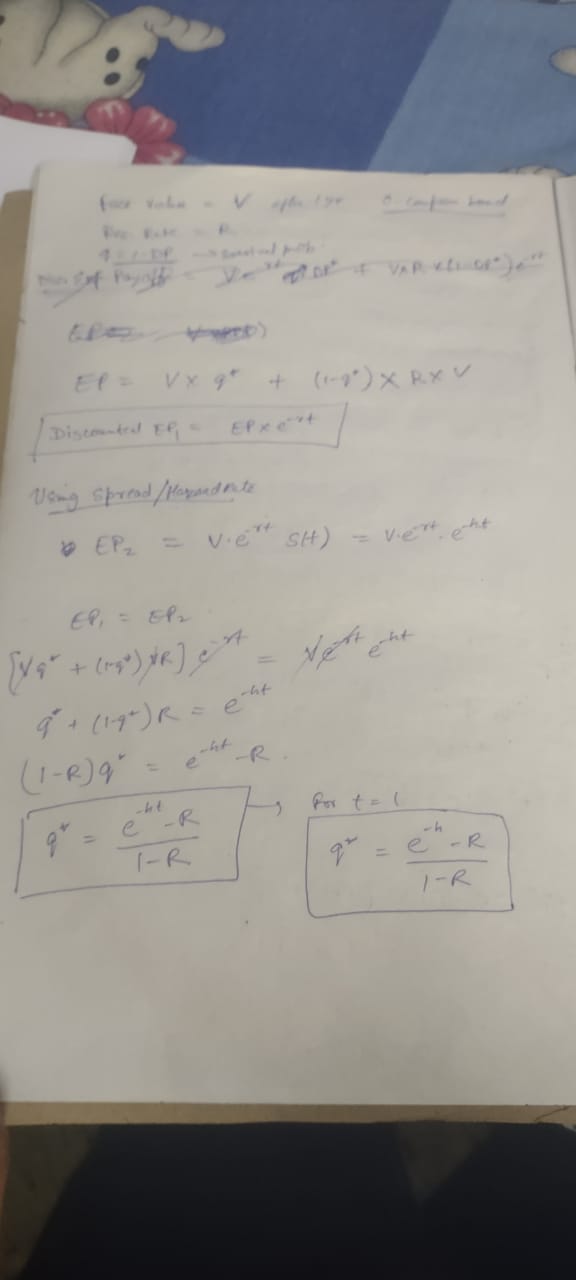 Face value = V after 1 yr 0 coupon bond
Rec. Rate = R
q = 1-DP → survival prob.
Payoff = V e^-rt DP* + V×R×(1-DP*) e^-rt
EP =
EP = V × q* + (1-q*) × R × V
Discounted EP₁ = EP × e^-rt
Using Spread/Hazard Rate
EP₂ = V.e^-rt S(t) = V.e^-rt. e^-ht
EP₁ = EP₂
[Vq* + (1-q*) VR] e^-rt = V e^-rt e^-ht
q* + (1-q*) R = e^-ht
(1-R) q* = e^-ht - R.
q* = (e^-ht - R)/(1-R) → for t = 1
q* = (e^-h - R)/(1-R)